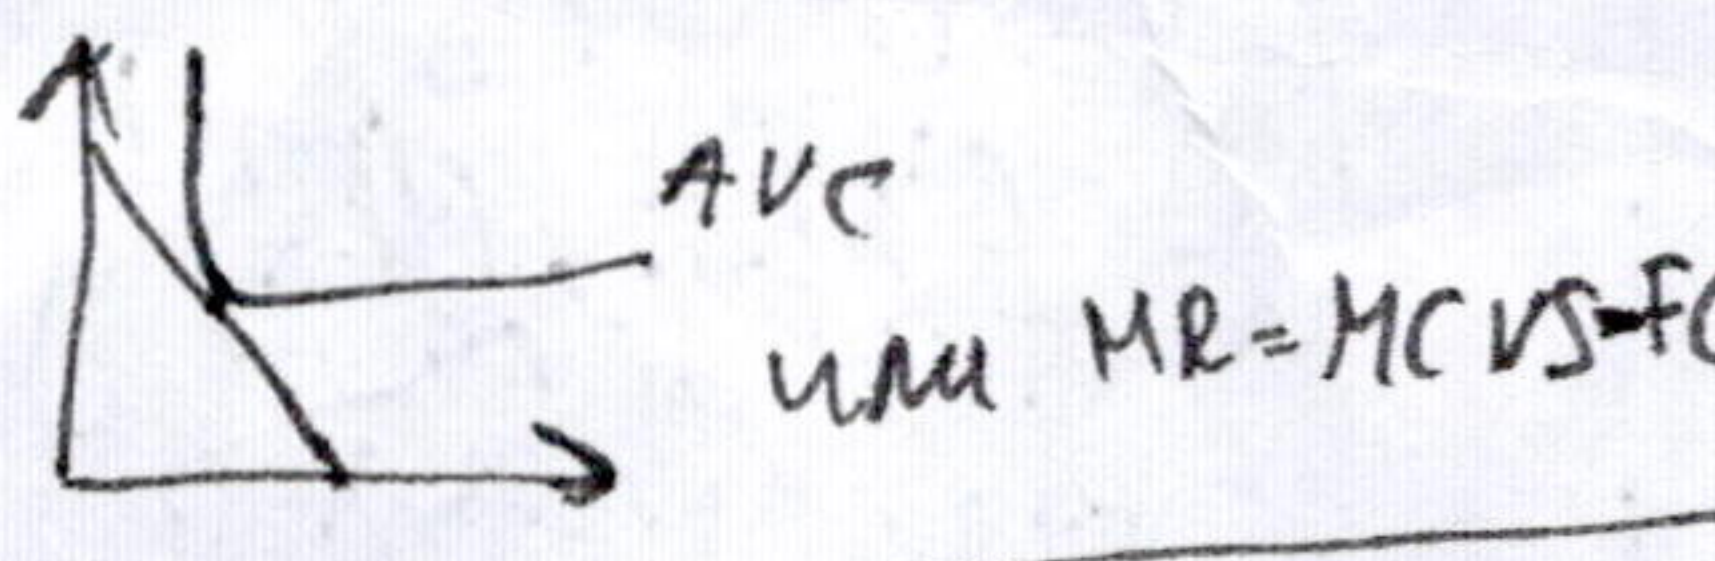 AVC
или MR = MC VS -FC